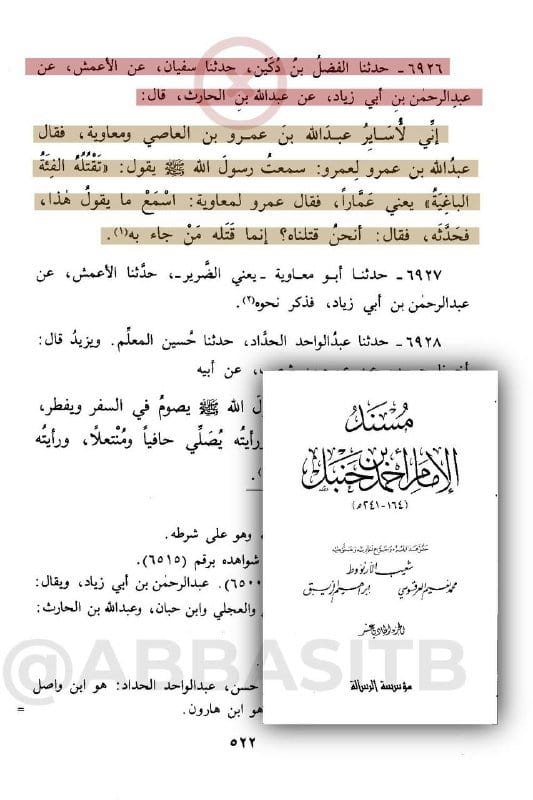 ٦٩٢٦- حدثنا الفضلُ بنُ دُكَيْن، حدثنا سفيان، عن الأعمش، عن
عبدِالرحمٰن بنِ أبي زياد، عن عبدالله بنِ الحارث، قال:
إنِّي لأُسَايِرُ عبدَالله بنَ عمرو بن العاصي ومعاوية، فقال
عبدُالله بن عمرو لِعمرو: سمعتُ رسولَ الله ﷺ يقول: «تَقْتُلُهُ الفِئَةُ
الباغِيَةُ» يعني عَمَّاراً، فقال عمرو لمعاوية: اسْمَعْ ما يقولُ هٰذا،
فحَدَّثَه، فقال: أنحنُ قتلناه؟ إنما قَتَله مَنْ جاء به(١).
٦٩٢٧- حدثنا أبو معاوية -يعني الضَّرير-، حدَّثنا الأعمش، عن
عبدالرحمٰن بن أبي زياد، فذكر نحوه(٢).
٦٩٢٨- حدثنا عبدُالواحد الحدَّاد، حدثنا حُسين المعلِّم. ويزيدُ قال:
عن أبيه
الله ﷺ يصومُ في السفر ويفطر،
يُصَلِّي حافياً ومُنْتعلًا، ورأيتُه
وهو على شرطه.
شواهده برقم (٦٥١٥).
عبدالرحمٰن بن أبي زياد، ويقال:
والعجلي وابن حبان، وعبدالله بن الحارث:
حسن، عبدالواحد الحداد: هو ابن واصل
هو ابن هارون.
=
٥٢٢
مُسْنَدُ
الإمام أحمد بن حنبل
(١٦٤-٢٤١هـ)
شعيب الأرنؤوط
محمد نعيم العرقسوسي إبراهيم الزيبق
الجزء الحادي عشر
مؤسسة الرسالة
@ABBASITB